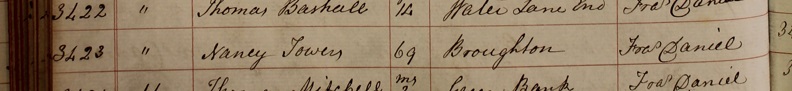 3422 " Thomas Bashall 14 Water Lane End Fras Daniel
3423 " Nancy Towers 69 Broughton Fras Daniel
Mitchell ms Bank Fras Daniel